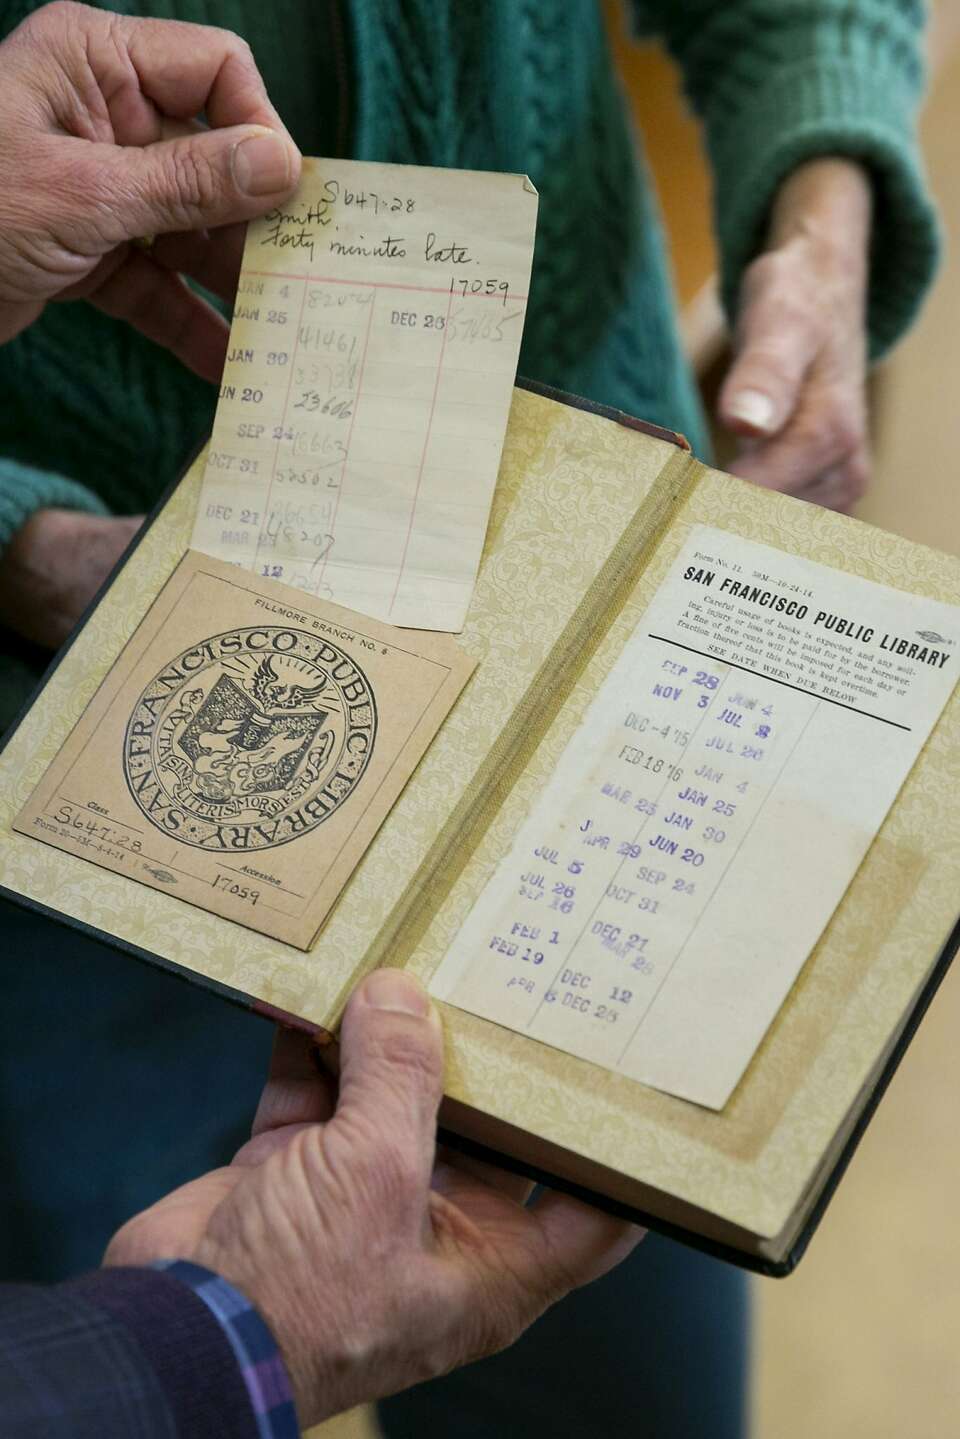 S647:28
Smith.
Forty minutes late.
17059
JAN 4 8204
JAN 25 DEC 26
41461
JAN 30
UN 20 23606
SEP 24
OCT 31 52502
DEC 21
MAR
12
FILLMORE BRANCH NO. 6
SAN FRANCISCO PUBLIC LIBRARY
VITA SINE LITERIS MORS EST
Class
S647:28
Form 20—5M—8-4-14
Accession
17059
Form No. 11. 50M—10-24-14.
SAN FRANCISCO PUBLIC LIBRARY
Careful usage of books is expected, and any soil-
ing, injury or loss is to be paid for by the borrower.
A fine of five cents will be imposed for each day or
fraction thereof that this book is kept overtime.
SEE DATE WHEN DUE BELOW
SEP 28 JUN 4
NOV 3 JUL
DEC -4 '15 JUL 26
FEB 18 '16 JAN 4
MAR 25 JAN 25
JAN 30
APR 29 JUN 20
JUL 5 SEP 24
JUL 26 OCT 31
SEP 16
FEB 1 DEC 21
FEB 19 MAR 28
DEC 12
APR 6 DEC 26